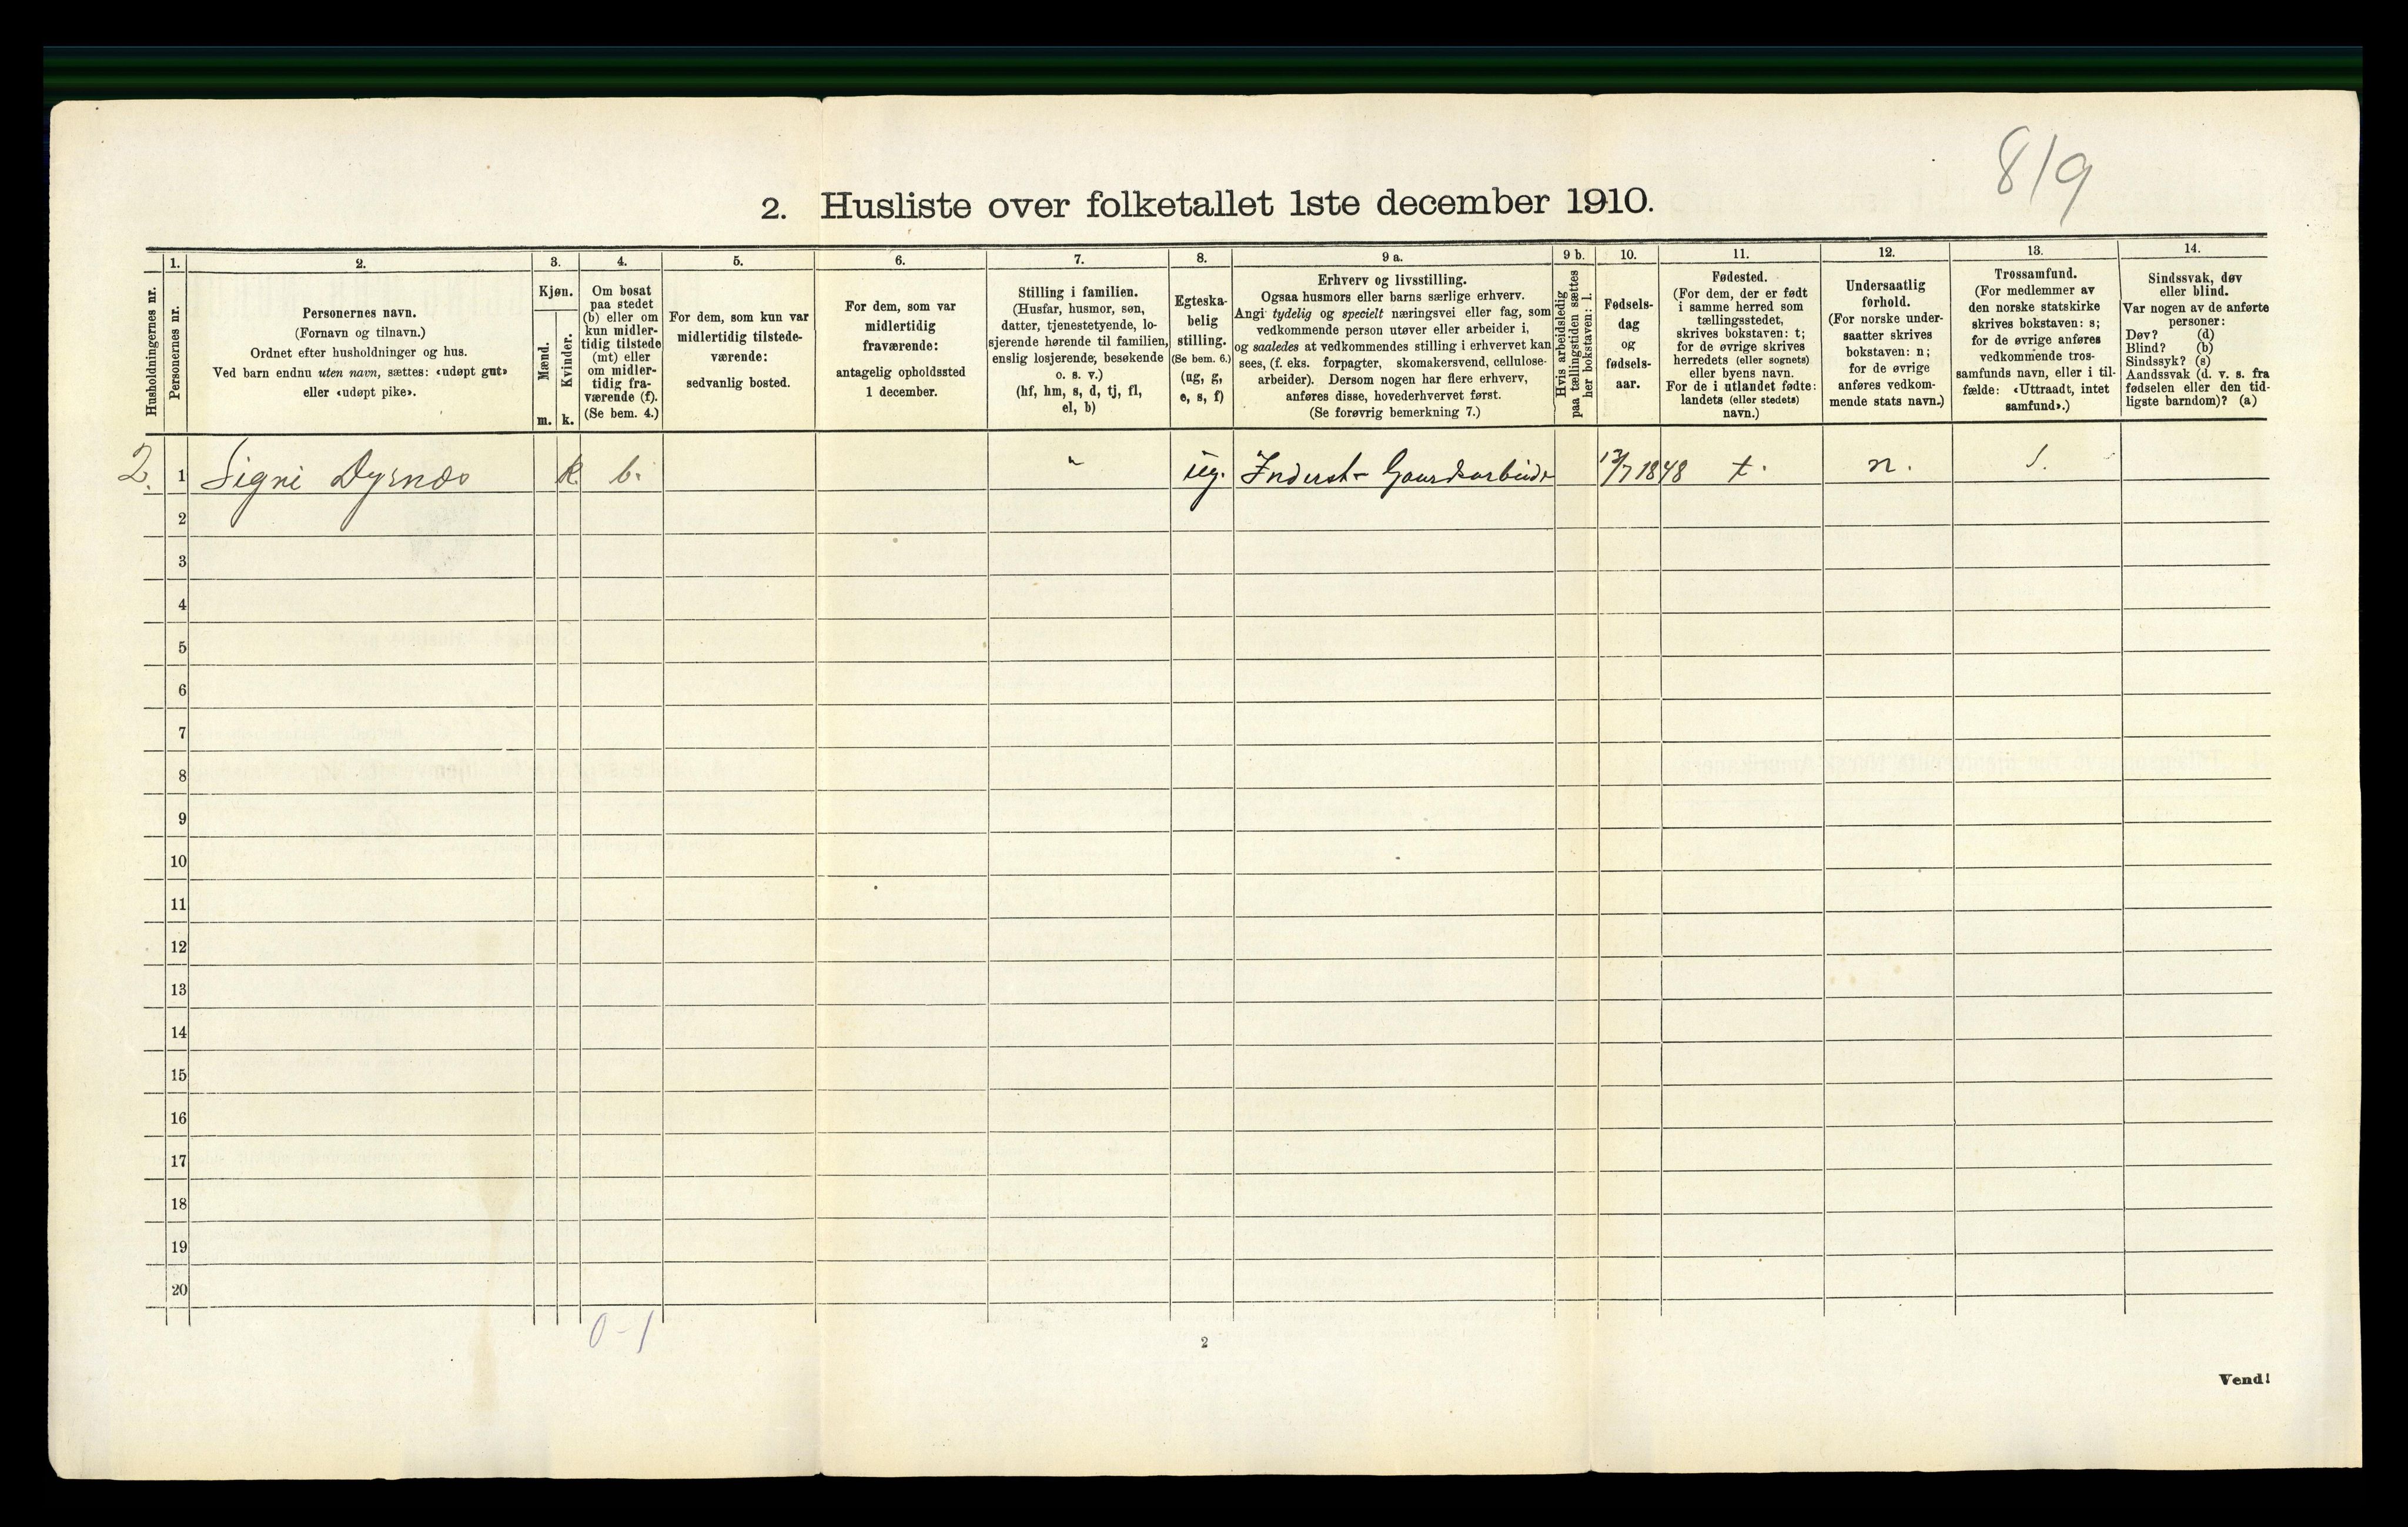 819
2. Husliste over folketallet 1ste december 1910.
Husholdningernes nr.
1.
Personernes nr.
2.
Personernes navn.
(Fornavn og tilnavn.)
Ordnet efter husholdninger og hus.
Ved barn endnu uten navn, sættes: «udøpt gut»
eller «udøpt pike».
3.
Kjøn.
Mænd.
m.
Kvinder.
k.
4.
Om bosat
paa stedet
(b) eller om
kun midler-
tidig tilstede
(mt) eller
om midler-
tidig fra-
værende (f).
(Se bem. 4.)
5.
For dem, som kun var
midlertidig tilstede-
værende:
sedvanlig bosted.
6.
For dem, som var
midlertidig
fraværende:
antagelig opholdssted
1 december.
7.
Stilling i familien.
(Husfar, husmor, søn,
datter, tjenestetyende, lo-
sjerende hørende til familien,
enslig losjerende, besøkende
o. s. v.)
(hf, hm, s, d, tj, fl,
el, b)
8.
Egteska-
belig
stilling.
(Se bem. 6.)
(ug, g,
e, s, f)
9 a.
Erhverv og livsstilling.
Ogsaa husmors eller barns særlige erhverv.
Angi tydelig og specielt næringsvei eller fag, som
vedkommende person utøver eller arbeider i,
og saaledes at vedkommendes stilling i erhvervet kan
sees, (f. eks. forpagter, skomakersvend, cellulose-
arbeider). Dersom nogen har flere erhverv,
anføres disse, hovederhvervet først.
(Se forøvrig bemerkning 7.)
9 b.
Hvis arbeidsledig
paa tællingstiden sættes
her bokstaven: l.
10.
Fødsels-
dag
og
fødsels-
aar.
11.
Fødested.
(For dem, der er født
i samme herred som
tællingsstedet,
skrives bokstaven: t;
for de øvrige skrives
herredets (eller sognets)
eller byens navn.
For de i utlandet fødte:
landets (eller stedets)
navn.)
12.
Undersaatlig
forhold.
(For norske under-
saatter skrives
bokstaven: n;
for de øvrige
anføres vedkom-
mende stats navn.)
13.
Trossamfund.
(For medlemmer av
den norske statskirke
skrives bokstaven: s;
for de øvrige anføres
vedkommende tros-
samfunds navn, eller i til-
fælde: «Uttraadt, intet
samfund».)
14.
Sindssvak, døv
eller blind.
Var nogen av de anførte
personer:
Døv? (d)
Blind? (b)
Sindssyk? (s)
Aandssvak (d. v. s. fra
fødselen eller den tid-
ligste barndom)? (a)
2. 1 Signi Dyrnæs k. b. " ug. Inderst - Gaardsarbeide 13/7 1848 t. n. s.
2
3
4
5
6
7
8
9
10
11
12
13
14
15
16
17
18
19
20
0-1
2
Vend!